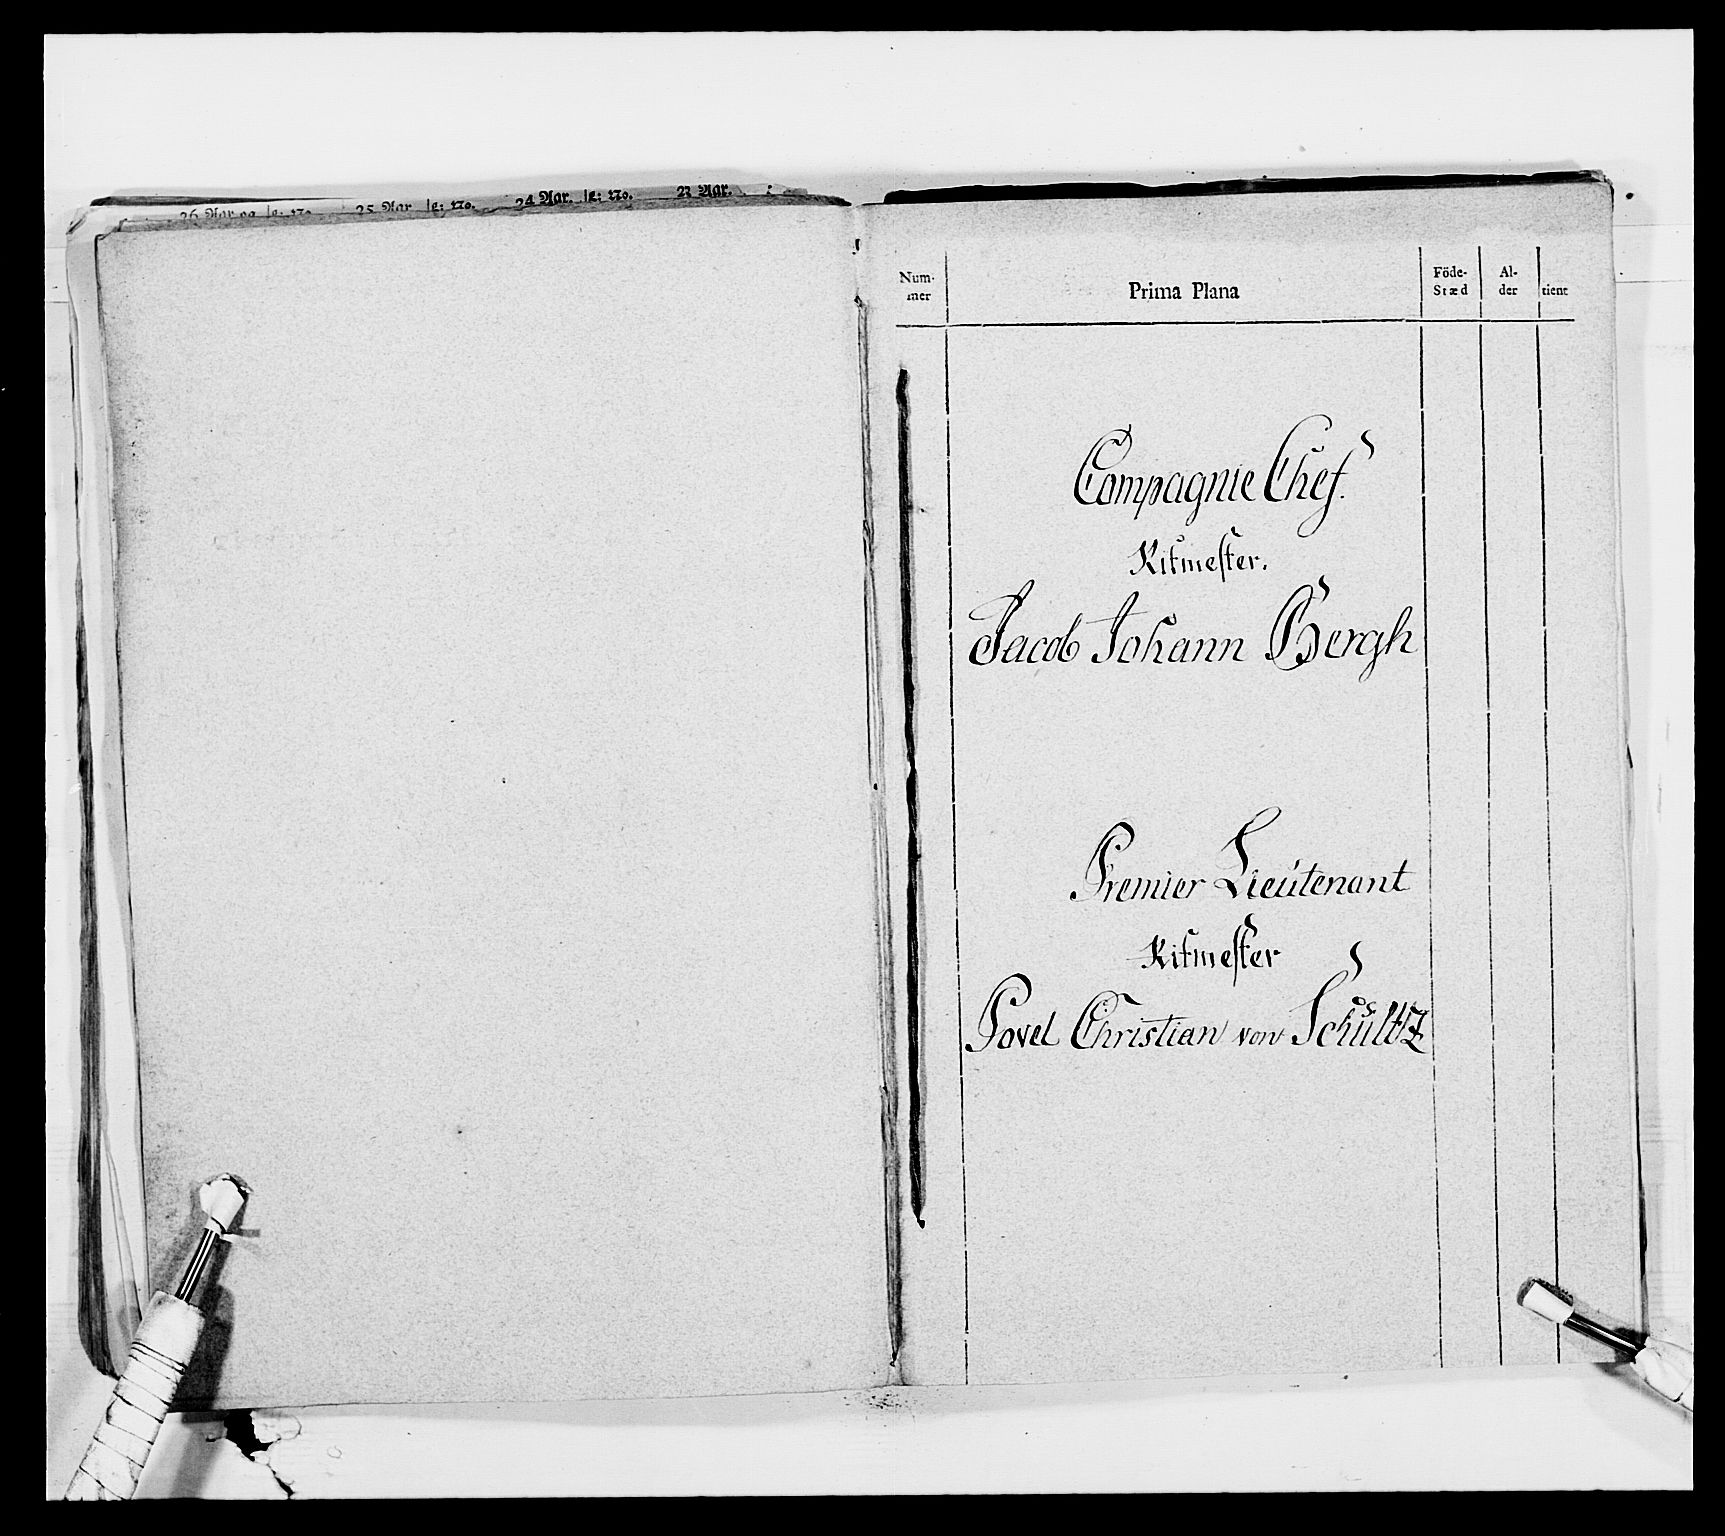 26 Aar og 25 Aar 24 Aar. 23 Aar.
Num-
mer
Prima Plana
Föde-
Stæd
Al-
der
tient
Compagnie Chef.
Ritmester.
Jacob Johann Bergh
Premier Lieutenant
Ritmester
Povel Christian von Schültz